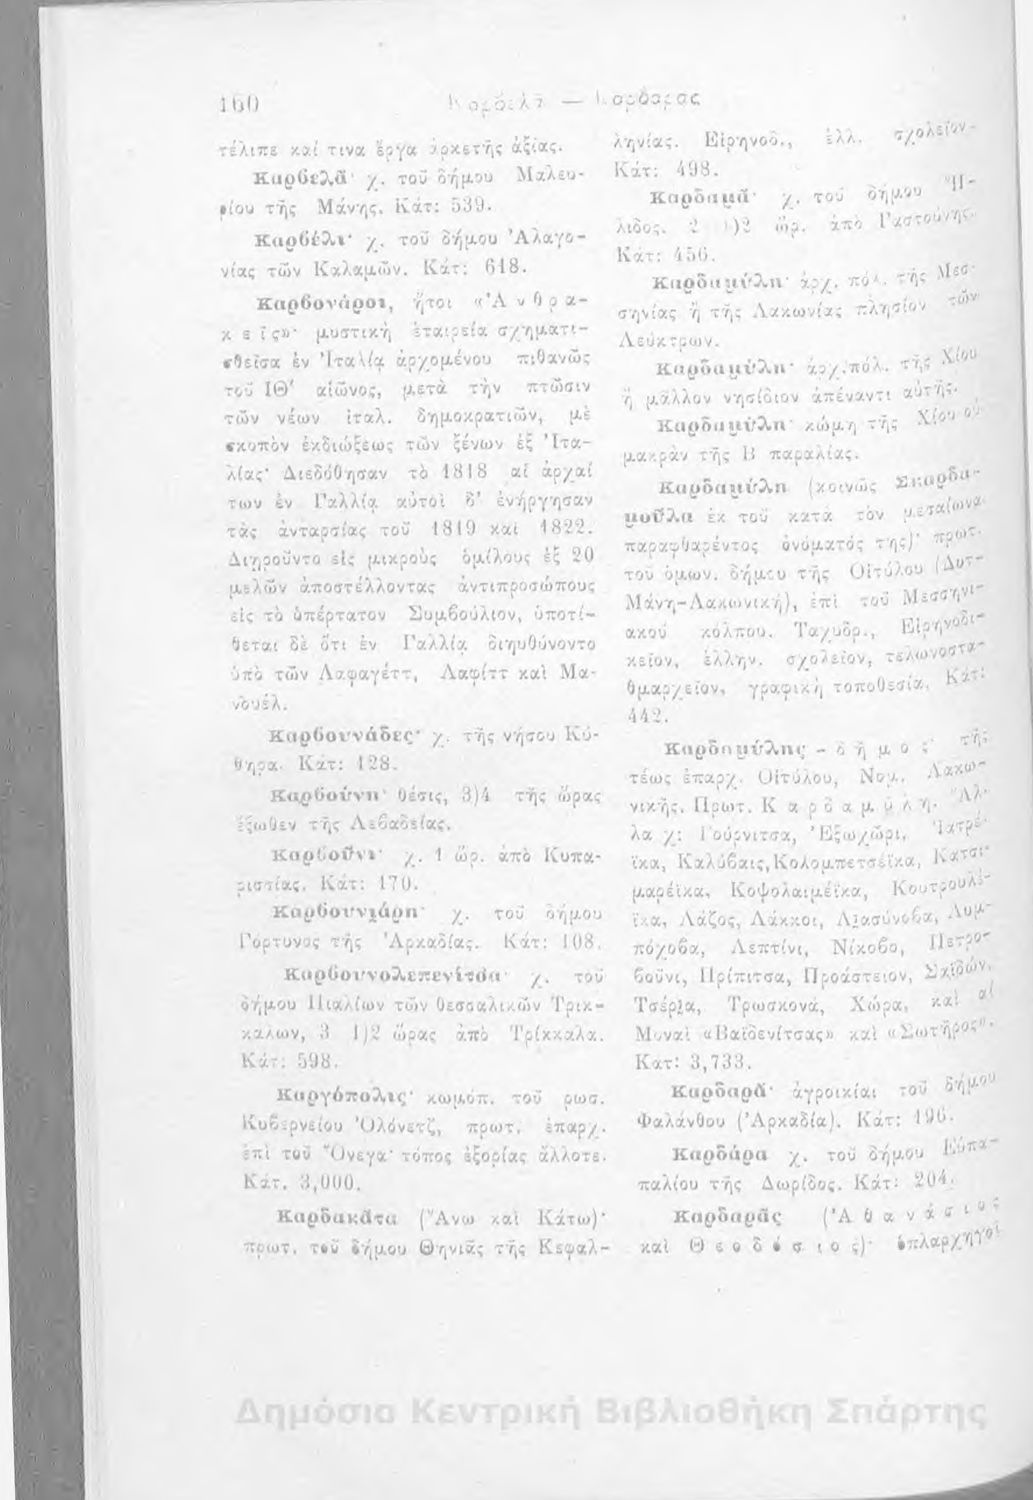 160
Καρβελᾶ — Καρδαρᾶς
τέλιπε καί τινα ἔργα ἀρκετῆς ἀξίας.
Καρβελᾶ· χ. τοῦ δήμου Μαλευ-
ρίου τῆς Μάνης. Κάτ: 539.
Καρβέλι· χ. τοῦ δήμου Ἀλαγο-
νίας τῶν Καλαμῶν. Κάτ: 618.
Καρβονάροι, ἤτοι «Ἀνθρα-
κεῖς»· μυστικὴ ἑταιρεία σχηματι-
σθεῖσα ἐν Ἰταλίᾳ ἀρχομένου πιθανῶς
τοῦ ΙΘ' αἰῶνος, μετὰ τὴν πτῶσιν
τῶν νέων ἰταλ. δημοκρατιῶν, μὲ
σκοπὸν ἐκδιώξεως τῶν ξένων ἐξ Ἰτα-
λίας· Διεδόθησαν τὸ 1818 αἱ ἀρχαί
των ἐν Γαλλίᾳ αὐτοὶ δ' ἐνήργησαν
τὰς ἀνταρσίας τοῦ 1819 καὶ 1822.
Διῃροῦντο εἰς μικροὺς ὁμίλους ἐξ 20
μελῶν ἀποστέλλοντας ἀντιπροσώπους
εἰς τὸ ὑπέρτατον Συμβούλιον, ὑποτί-
θεται δὲ ὅτι ἐν Γαλλίᾳ διηυθύνοντο
ὑπὸ τῶν Λαφαγέττ, Λαφίττ καὶ Μα-
νουέλ.
Καρβουνάδες· χ. τῆς νήσου Κύ-
θηρα. Κάτ: 128.
Καρβούνη· θέσις, 3)4 τῆς ὥρας
ἔξωθεν τῆς Λεβαδείας.
Καρβοῦνι· χ. 1 ὥρ. ἀπὸ Κυπα-
ρισσίας. Κάτ: 170.
Καρβουνιάρη· χ. τοῦ δήμου
Γόρτυνος τῆς Ἀρκαδίας. Κάτ: 108.
Καρβουνολεπενίτσα· χ. τοῦ
δήμου Πιαλίων τῶν θεσσαλικῶν Τρικ-
κάλων, 3 1)2 ὥρας ἀπὸ Τρίκκαλα.
Κάτ: 598.
Καργόπολις· κωμόπ. τοῦ ρωσ.
Κυβερνείου Ὀλόνετζ, πρωτ. ἐπαρχ.
ἐπὶ τοῦ Ὄνεγα· τόπος ἐξορίας ἄλλοτε.
Κάτ. 3,000.
Καρδακάτα (Ἄνω καὶ Κάτω)·
πρωτ. τοῦ δήμου Θηνιᾶς τῆς Κεφαλ-
ληνίας. Εἰρηνοδ., ἑλλ. σχολεῖον.
Κάτ: 498.
Καρδαμᾶ· χ. τοῦ δήμου Ἤ-
λιδος. 2 1)2 ὥρ. ἀπὸ Γαστούνης.
Κάτ: 456.
Καρδαμύλη· ἀρχ. πόλ. τῆς Μεσ-
σηνίας ἢ τῆς Λακωνίας πλησίον τῶν
Λεύκτρων.
Καρδαμύλη· ἀρχ. πόλ. τῆς Χίου
ἢ μᾶλλον νησίδιον ἀπέναντι αὐτῆς.
Καρδαμύλη· κώμη τῆς Χίου οὐ
μακρὰν τῆς Β παραλίας.
Καρδαμύλη (κοινῶς Σκαρδα-
μοῦλα ἐκ τοῦ κατὰ τὸν μεσαίωνα
παραφθαρέντος ὀνόματός της)· πρωτ.
τοῦ ὁμων. δήμου τῆς Οἰτύλου (Δυτ-
Μάνη-Λακωνική), ἐπὶ τοῦ Μεσσηνι-
ακοῦ κόλπου. Ταχυδρ., Εἰρηνοδι-
κεῖον, ἑλλην. σχολεῖον, τελωνοστα-
θμαρχεῖον, γραφικὴ τοποθεσία. Κάτ:
442.
Καρδαμύλης - δῆμος· τῆς
τέως ἐπαρχ. Οἰτύλου, Νομ. Λακω-
νικῆς. Πρωτ. Καρδαμύλη. Ἄλ-
λα χ: Γούρνιτσα, Ἐξωχῶρι, Ἰατρέ-
ϊκα, Καλύβαις, Κολομπετσέϊκα, Κατσι-
μαρέϊκα, Κοψολαιμέϊκα, Κουτρουλέ-
ϊκα, Λάζος, Λάκκοι, Λιασύνοβα, Λυμ-
πόχοβα, Λεπτίνι, Νίκοβο, Πετρο-
βοῦνι, Πρίπιτσα, Προάστειον, Σαϊδῶν,
Τσέρια, Τρωσκονά, Χώρα, καὶ αἱ
Μοναὶ «Βαϊδενίτσας» καὶ «Σωτῆρος».
Κατ: 3,733.
Καρδαρᾶ· ἀγροικίαι τοῦ δήμου
Φαλάνθου (Ἀρκαδία). Κάτ: 196.
Καρδάρα χ. τοῦ δήμου Εὐπα-
παλίου τῆς Δωρίδος. Κάτ: 204.
Καρδαρᾶς (Ἀθανάσιος
καὶ Θεοδόσιος)· ὁπλαρχηγοὶ
Δημόσια Κεντρική Βιβλιοθήκη Σπάρτης